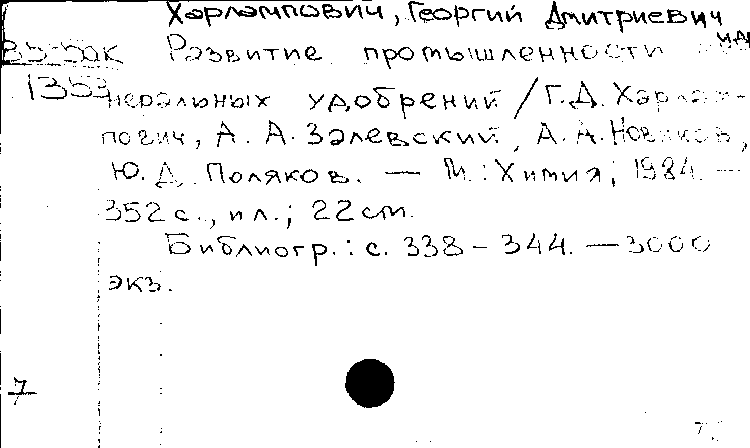 Харлампович, Георгий Дмитриевич
Развитие промышленности ми
1353
неральных удобрений / Г.Д. Харлам-
пович, А. А. Залевский, А. А. Новиков,
Ю. Д. Поляков. — М.: Химия, 1984. —
352 с., ил.; 22 см.
Библиогр.: с. 338 – 344. — 3000
экз.
7